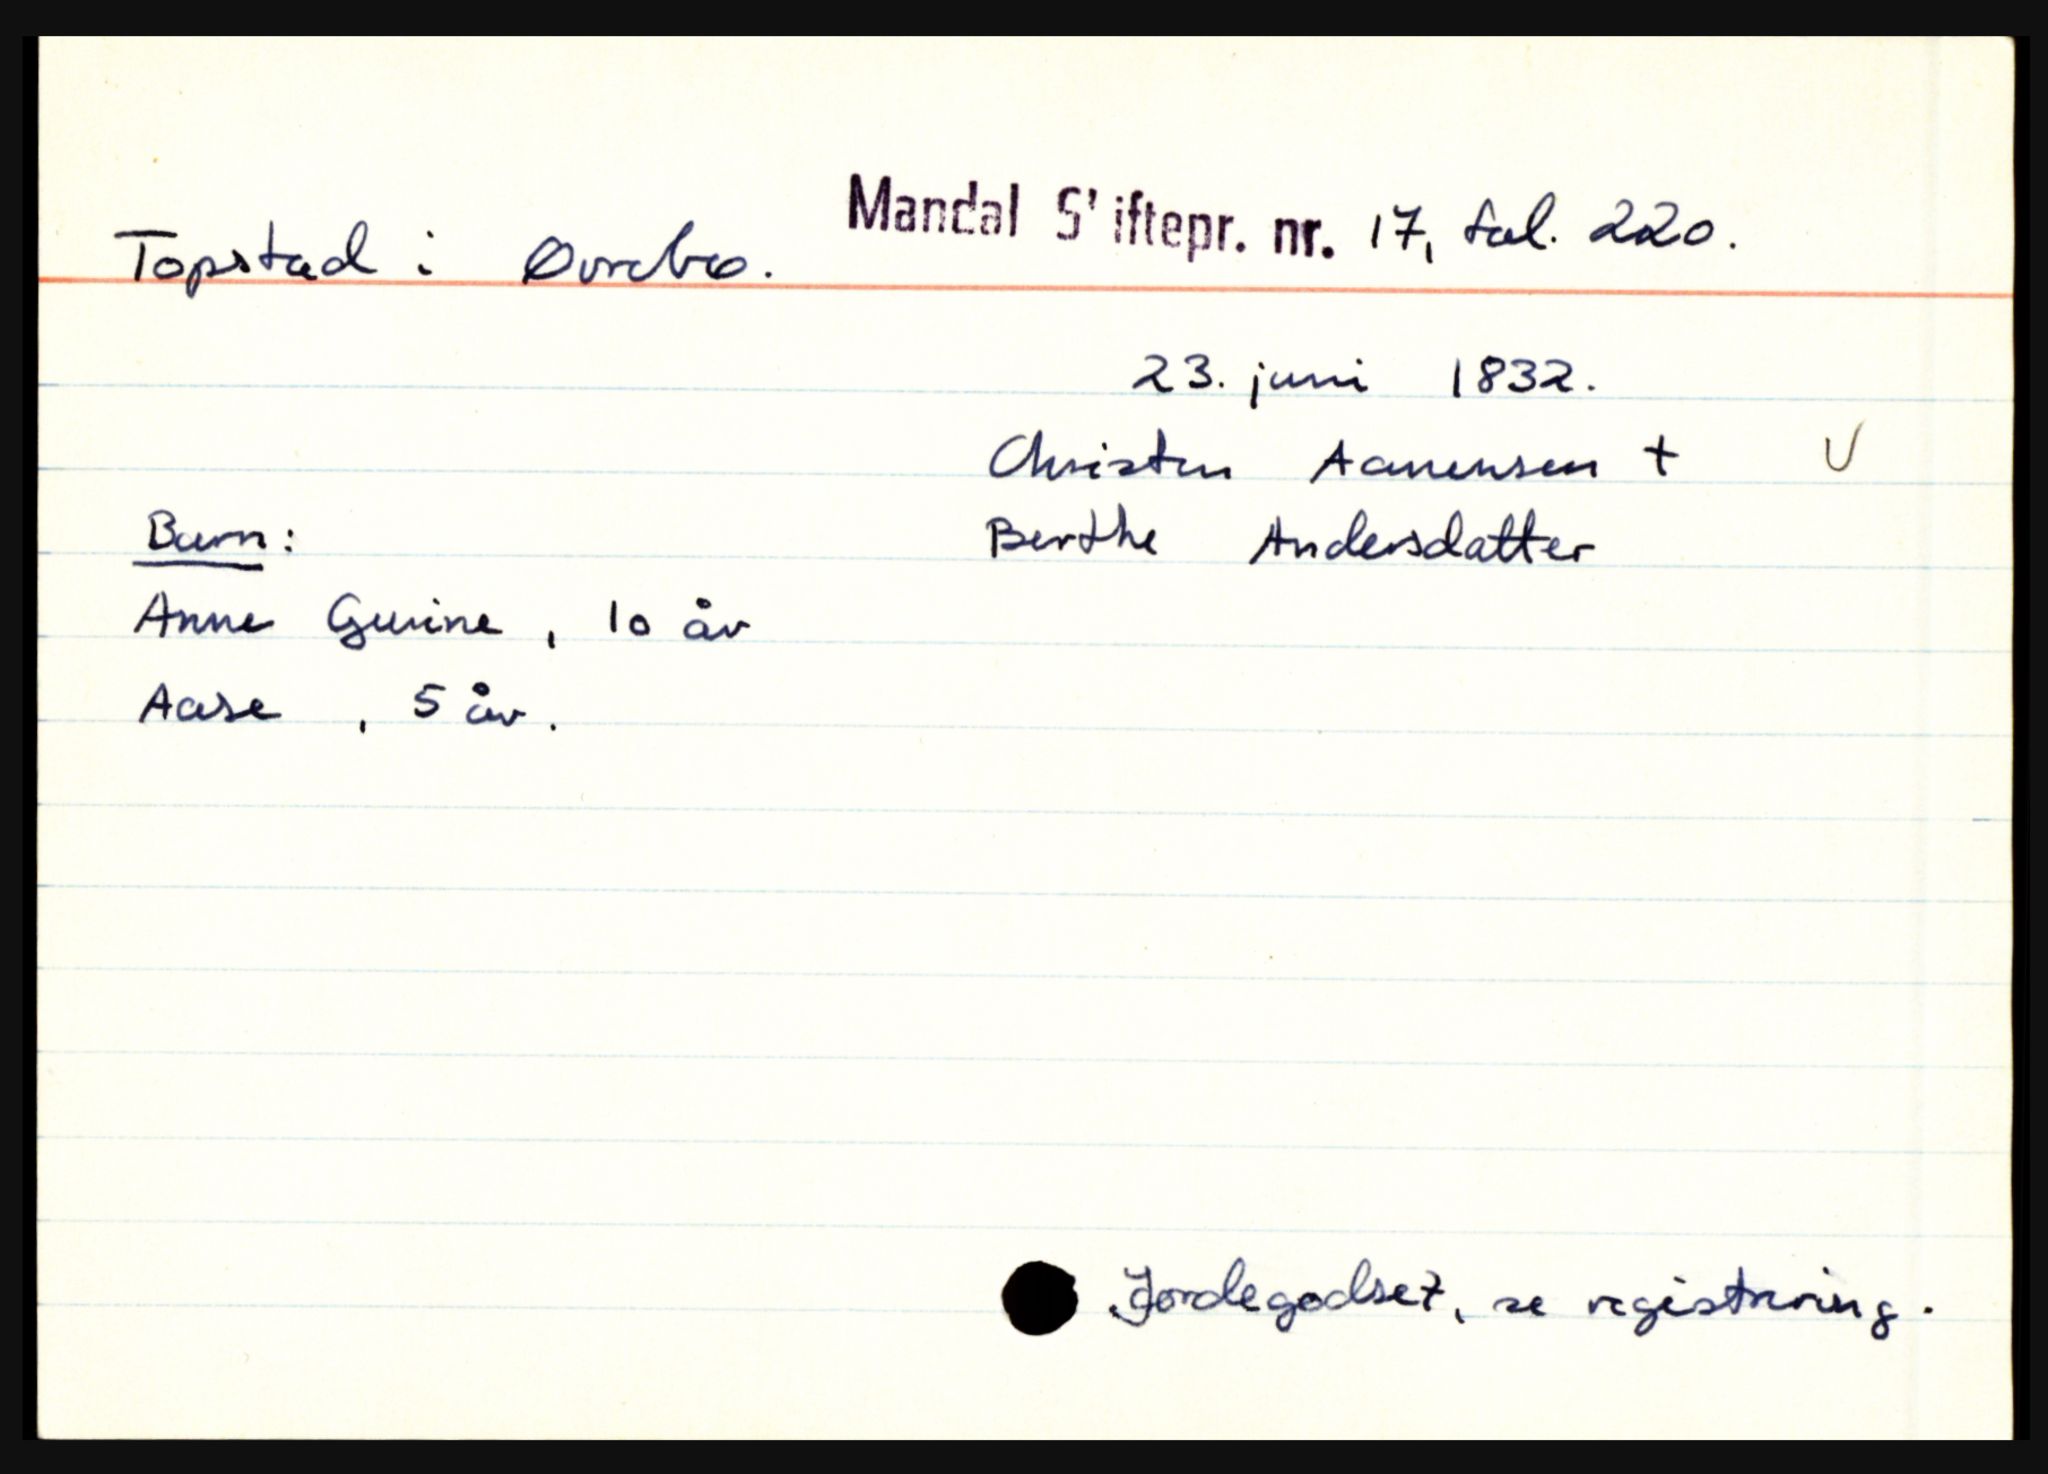 Mandal Skiftepr. nr. 17, fol. 220.
Topstad i Øvrebø.
23. juni 1832.
Christen Aanensen +
Berthe Andersdatter
Barn:
Anne Gurine, 10 år
Aase, 5 år.
Jordegodset, se registrering.